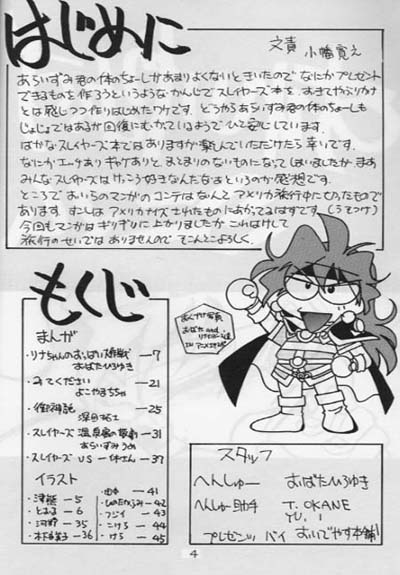 はじめに
文責 小幡寛え
あらいずみ君の体のちょーしがあまりよくないときいたので なにか プレゼント
できるものを 作ろうというような かんじで スレイヤーズ本を
とは 感じつつ 作りはじめたワケです。どうやら あらいずみ君の体のちょーしも
じょじょではあるが 回復にむかっているようで ひと安心しています。
ばかな スレイヤーズ本ではありますが 楽しんでいただけたら 幸いです。
なにか エーチありギャグありと、まとまりのないものになってしまいましたが まあ
みんな スレイヤーズはけっこう好きなんだなぁ というのが 感想です。
ところで あいらのマンガのコンテは なんと アメリカ旅行中に
あります すこしは アメリカナイズされたものに はずです (うそつけ)
今回も マンガは ギリギリに 上がりましたが これはけして
旅行のせいでは ありませんので てこんとこよろしく。
もくじ
まんが
・リナちゃんの おっぱい大作戦 —7
おばたひろゆき
・みてください —21
よこやまちちゃ
・御神託 —25
深田拓士
・スレイヤーズ 温泉 —31
あらいずみるい
・スレイヤーズ VS 一休さん —37
イラスト
・津熊 —5
・とおる —6
・河野 —35
・木下 —36
・由本 —41
・ひのたかふみ —42
・フジイ —43
・こけら —44
・けろ —45
おくづけ写真
おばた and
IN アメリカ
スタッフ
へんしゅー おばたひろゆき
へんしゅー助手 T. OKANE
YU. I
プレゼンツ バイ おいでやす本舗
4